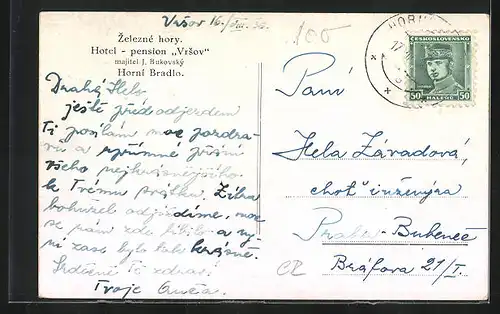 Vršov 16./VIII. 36.
Železné hory.
Hotel - pension „Vršov"
majitel J. Bukovský
Horní Bradlo.
Drahá Helo
ještě před odjezdem
Ti posílám moc pozdra-
vů a upřímné přání
všeho nejkrásnějšího
k Tvému svátku. Zítra
bohužel odjíždíme, moc
se nám zde líbilo a ny-
ní zase bylo tak krásně.
Srdečně Tě zdraví
Tvoje Anča.
100
HORNÍ
17
ČESKOSLOVENSKO
50 HALÉŘŮ 50
Paní
Hela Závadová,
choť inženýra
Praha-Bubeneč
Bráfova 21/I.